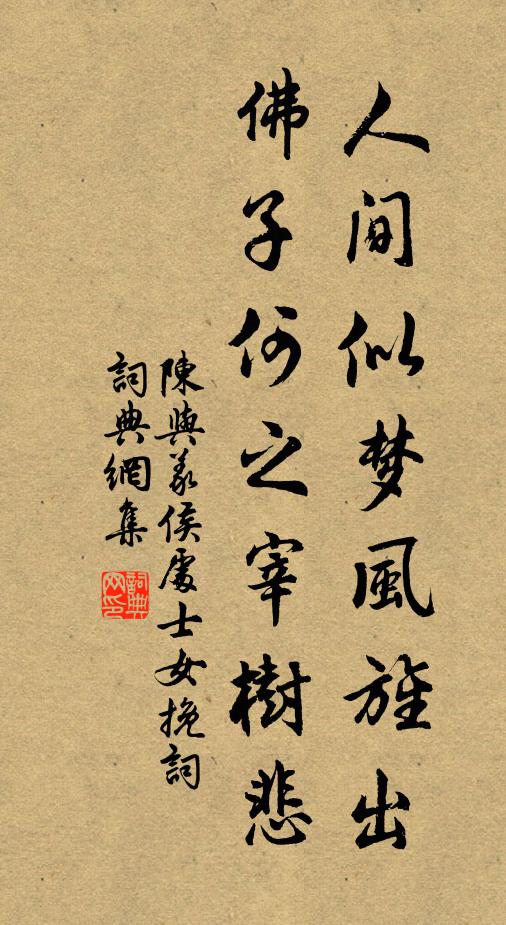 人間似梦風旌出
佛子何之宰樹悲
陳與義侯處士女挽詞
詞典網集
詞典网印